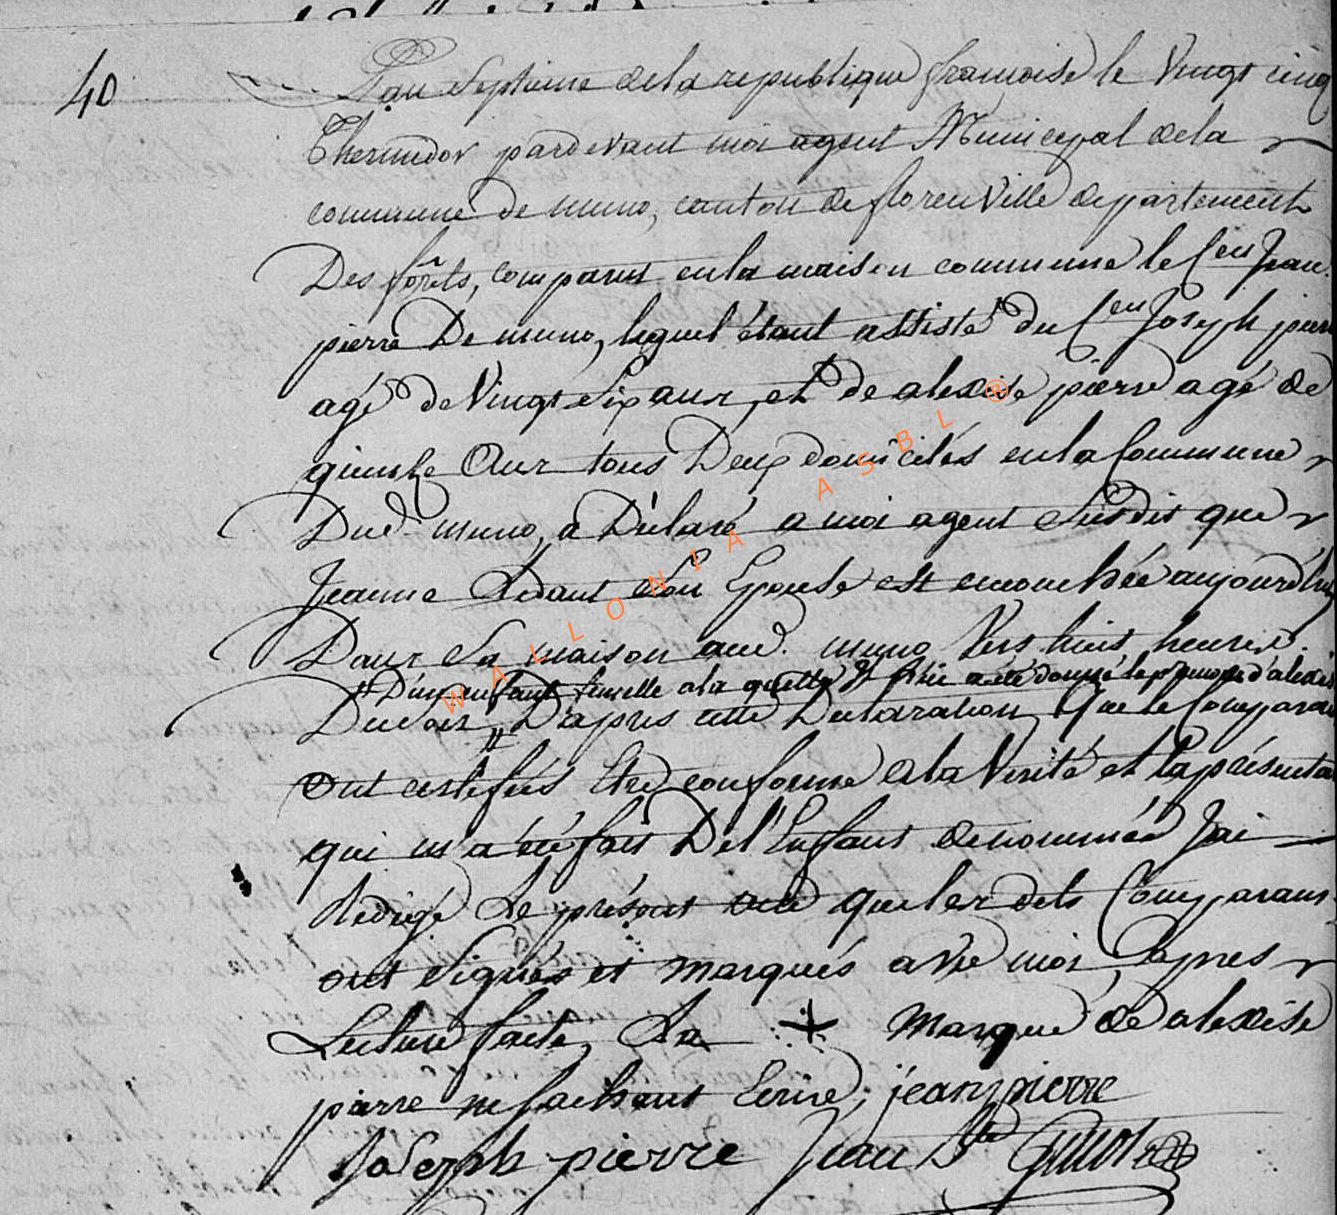 40
L'an Septieme de la republique francoise le Vingt cinq
Thermidor pardevant moi agent Municepal de la
commune de muno, canton de florenville departement
Des forêts, comparus en la maison commune le Cen Jean
pierre De muno, lequel étant assisté du Cen Joseph pierre
agé de Vingt Six ans, et de alexise pierre agé de
quinse Ans tous Deux domicilés en la Commune
Dud. muno, a Déclaré a moi agent Susdit que
Jeanne son Epouse est accouchée aujourd'huy
Dans Sa maison aud. muno Vers huit heures
" D'un enfant femelle a la quelle a été donné le prenom d'alexise
Du soir " D'apres cette Declaration, que le Comparant
ont certifiés Etre conforme a la Verité et la présentation
qui m'a été fait De l'Enfant denommée Jai
Redigé Le présent acte que les dits Comparans
ont Signés et marqués avec moi, apres
Lecture faite, La + marque de alexise
pierre ne sachant Ecrire; jean pierre
Joseph pierre Jean Bte
WALLONIA ASBL ®